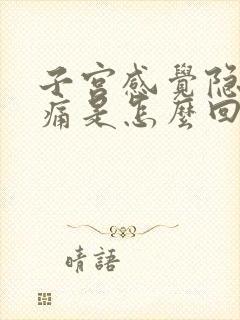 子宫感覺隐
痛是怎麼回
晴語